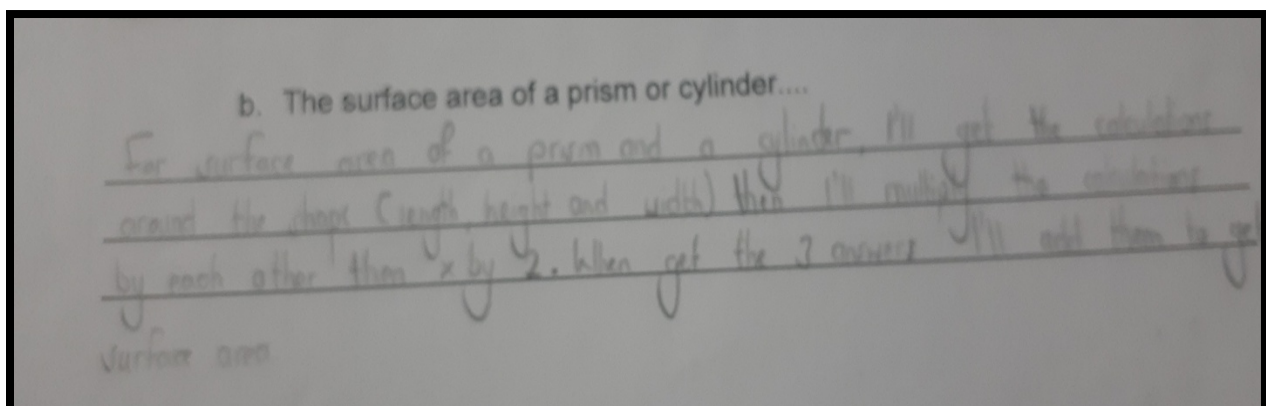 b. The surface area of a prism or cylinder....
For surface area of a prism and a cylinder, I'll get the calculations
around the shape (length, height and width) then I'll multiply the calculations
by each other then x by 2. When get the 3 answers I'll add them to get
surface area